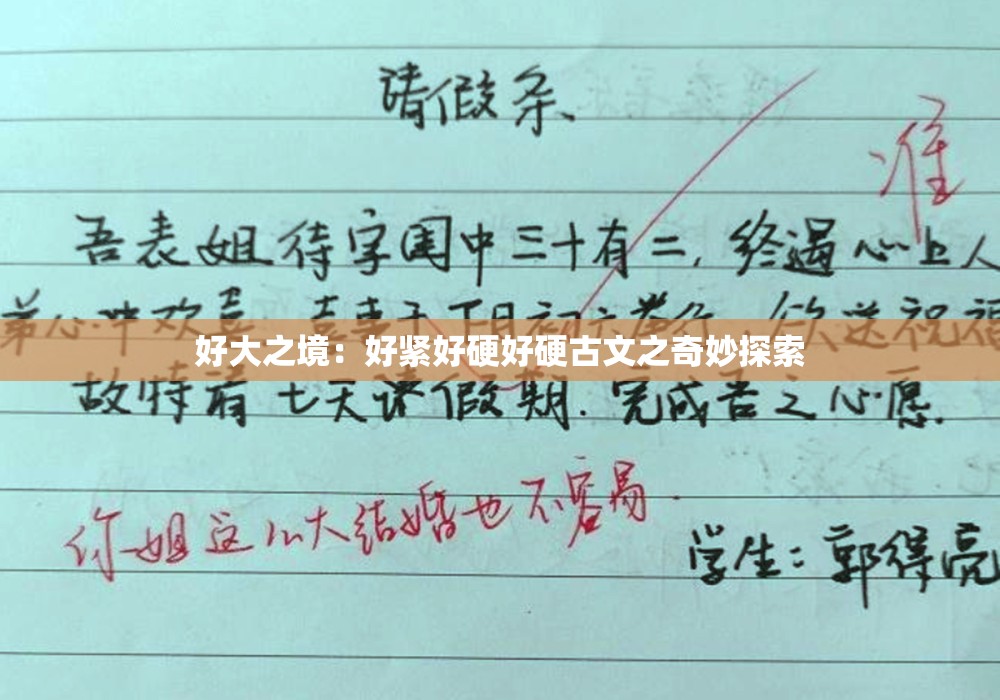 请假条、
准
吾表姐待字闺中三十有二,终遇心上人
心中欢喜 喜事于 初六举行 送祝福
好大之境：好紧好硬好硬古文之奇妙探索
故特 七天 假期.完成吾之心愿.
你姐这么大结婚也不容易.
学生:郭得亮